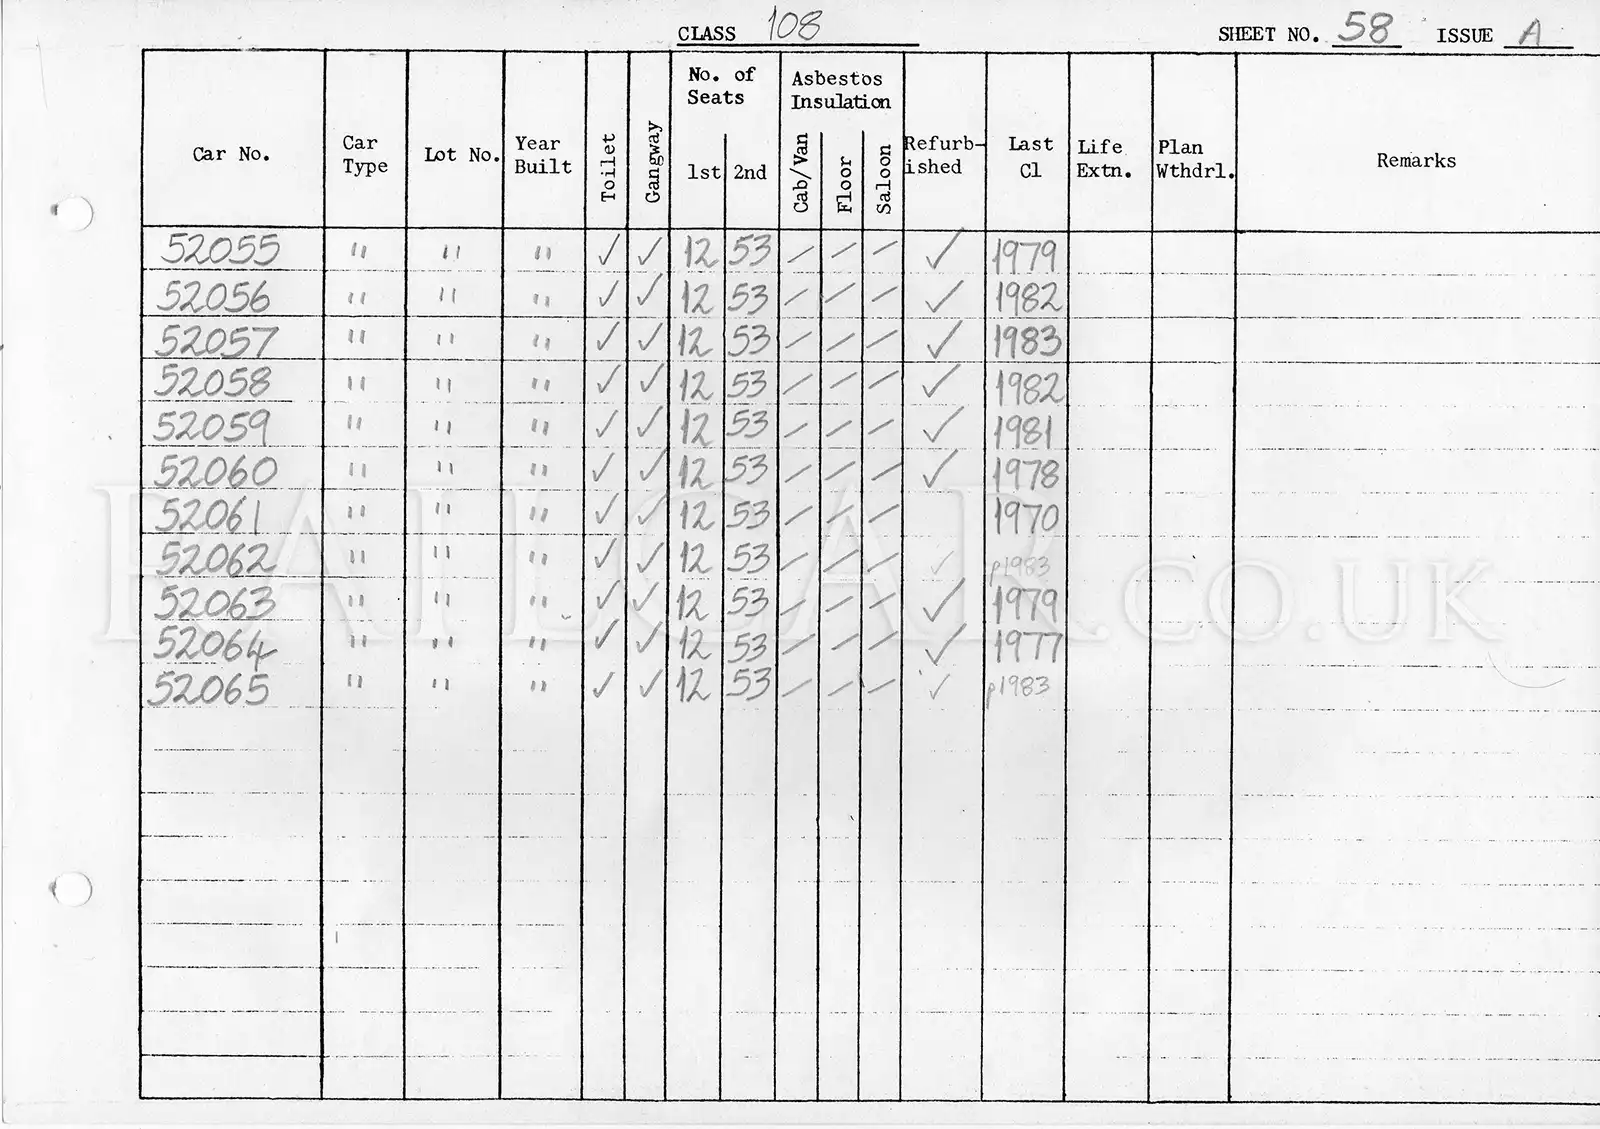 CLASS 108 SHEET NO. 58 ISSUE A
Car No. Car Type Lot No. Year Built Toilet Gangway No. of Seats 1st 2nd Asbestos Insulation Cab/Van Floor Saloon Refurb-ished Last Cl Life Extn. Plan Wthdrl. Remarks
52055 " " " ✓ ✓ 12 53 / / / ✓ 1979
52056 " " " ✓ ✓ 12 53 / / / ✓ 1982
52057 " " " ✓ ✓ 12 53 / / / ✓ 1983
52058 " " " ✓ ✓ 12 53 / / / ✓ 1982
52059 " " " ✓ ✓ 12 53 / / / ✓ 1981
52060 " " " ✓ ✓ 12 53 / / / ✓ 1978
52061 " " " ✓ ✓ 12 53 / / / 1970
52062 " " " ✓ ✓ 12 53 / / / ✓ p1983
52063 " " " ✓ ✓ 12 53 / / / ✓ 1979
52064 " " " ✓ ✓ 12 53 / / / ✓ 1977
52065 " " " ✓ ✓ 12 53 / / / ✓ p1983
RAILCAR.CO.UK